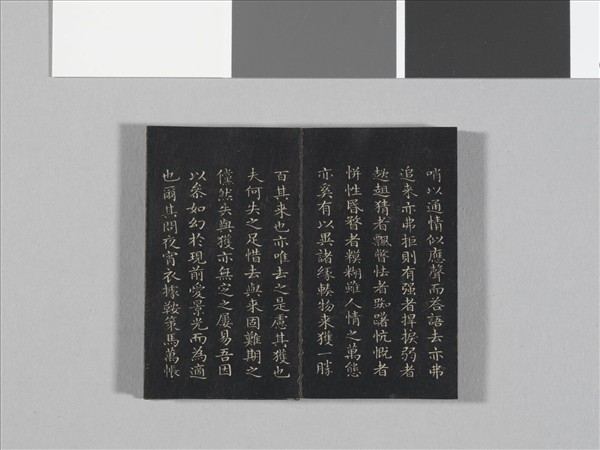 哨以通情似應聲而荅語去亦弗
追来亦弗拒則有强者捍掞弱者
趑趄猜者飄瞥怯者踟躕忼慨者
恲性昏瞀者糢糊雖人情之萬態
亦奚有以異諸緣軼物来獲一勝
百其来也亦唯去之是慮其獲也
夫何失之足惜去與来固難期之
儻然失與獲亦無定之屢易吾因
以叅如幻於現前愛景光而為適
也爾其問夜宵衣據鞍策馬萬帳